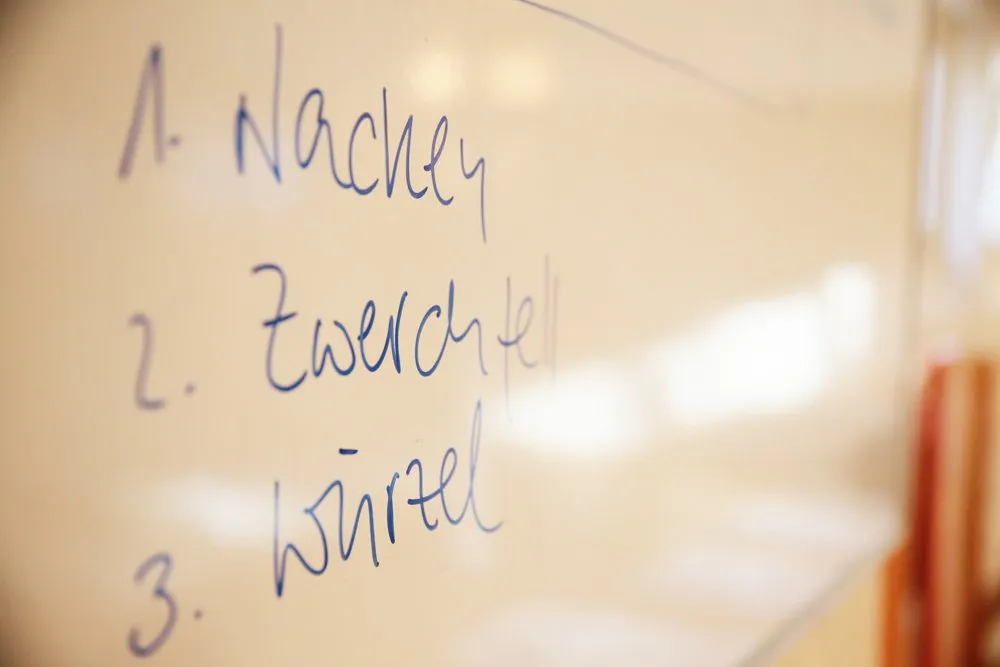 1. Nacken
2. Zwerchfell
3. Wurzel